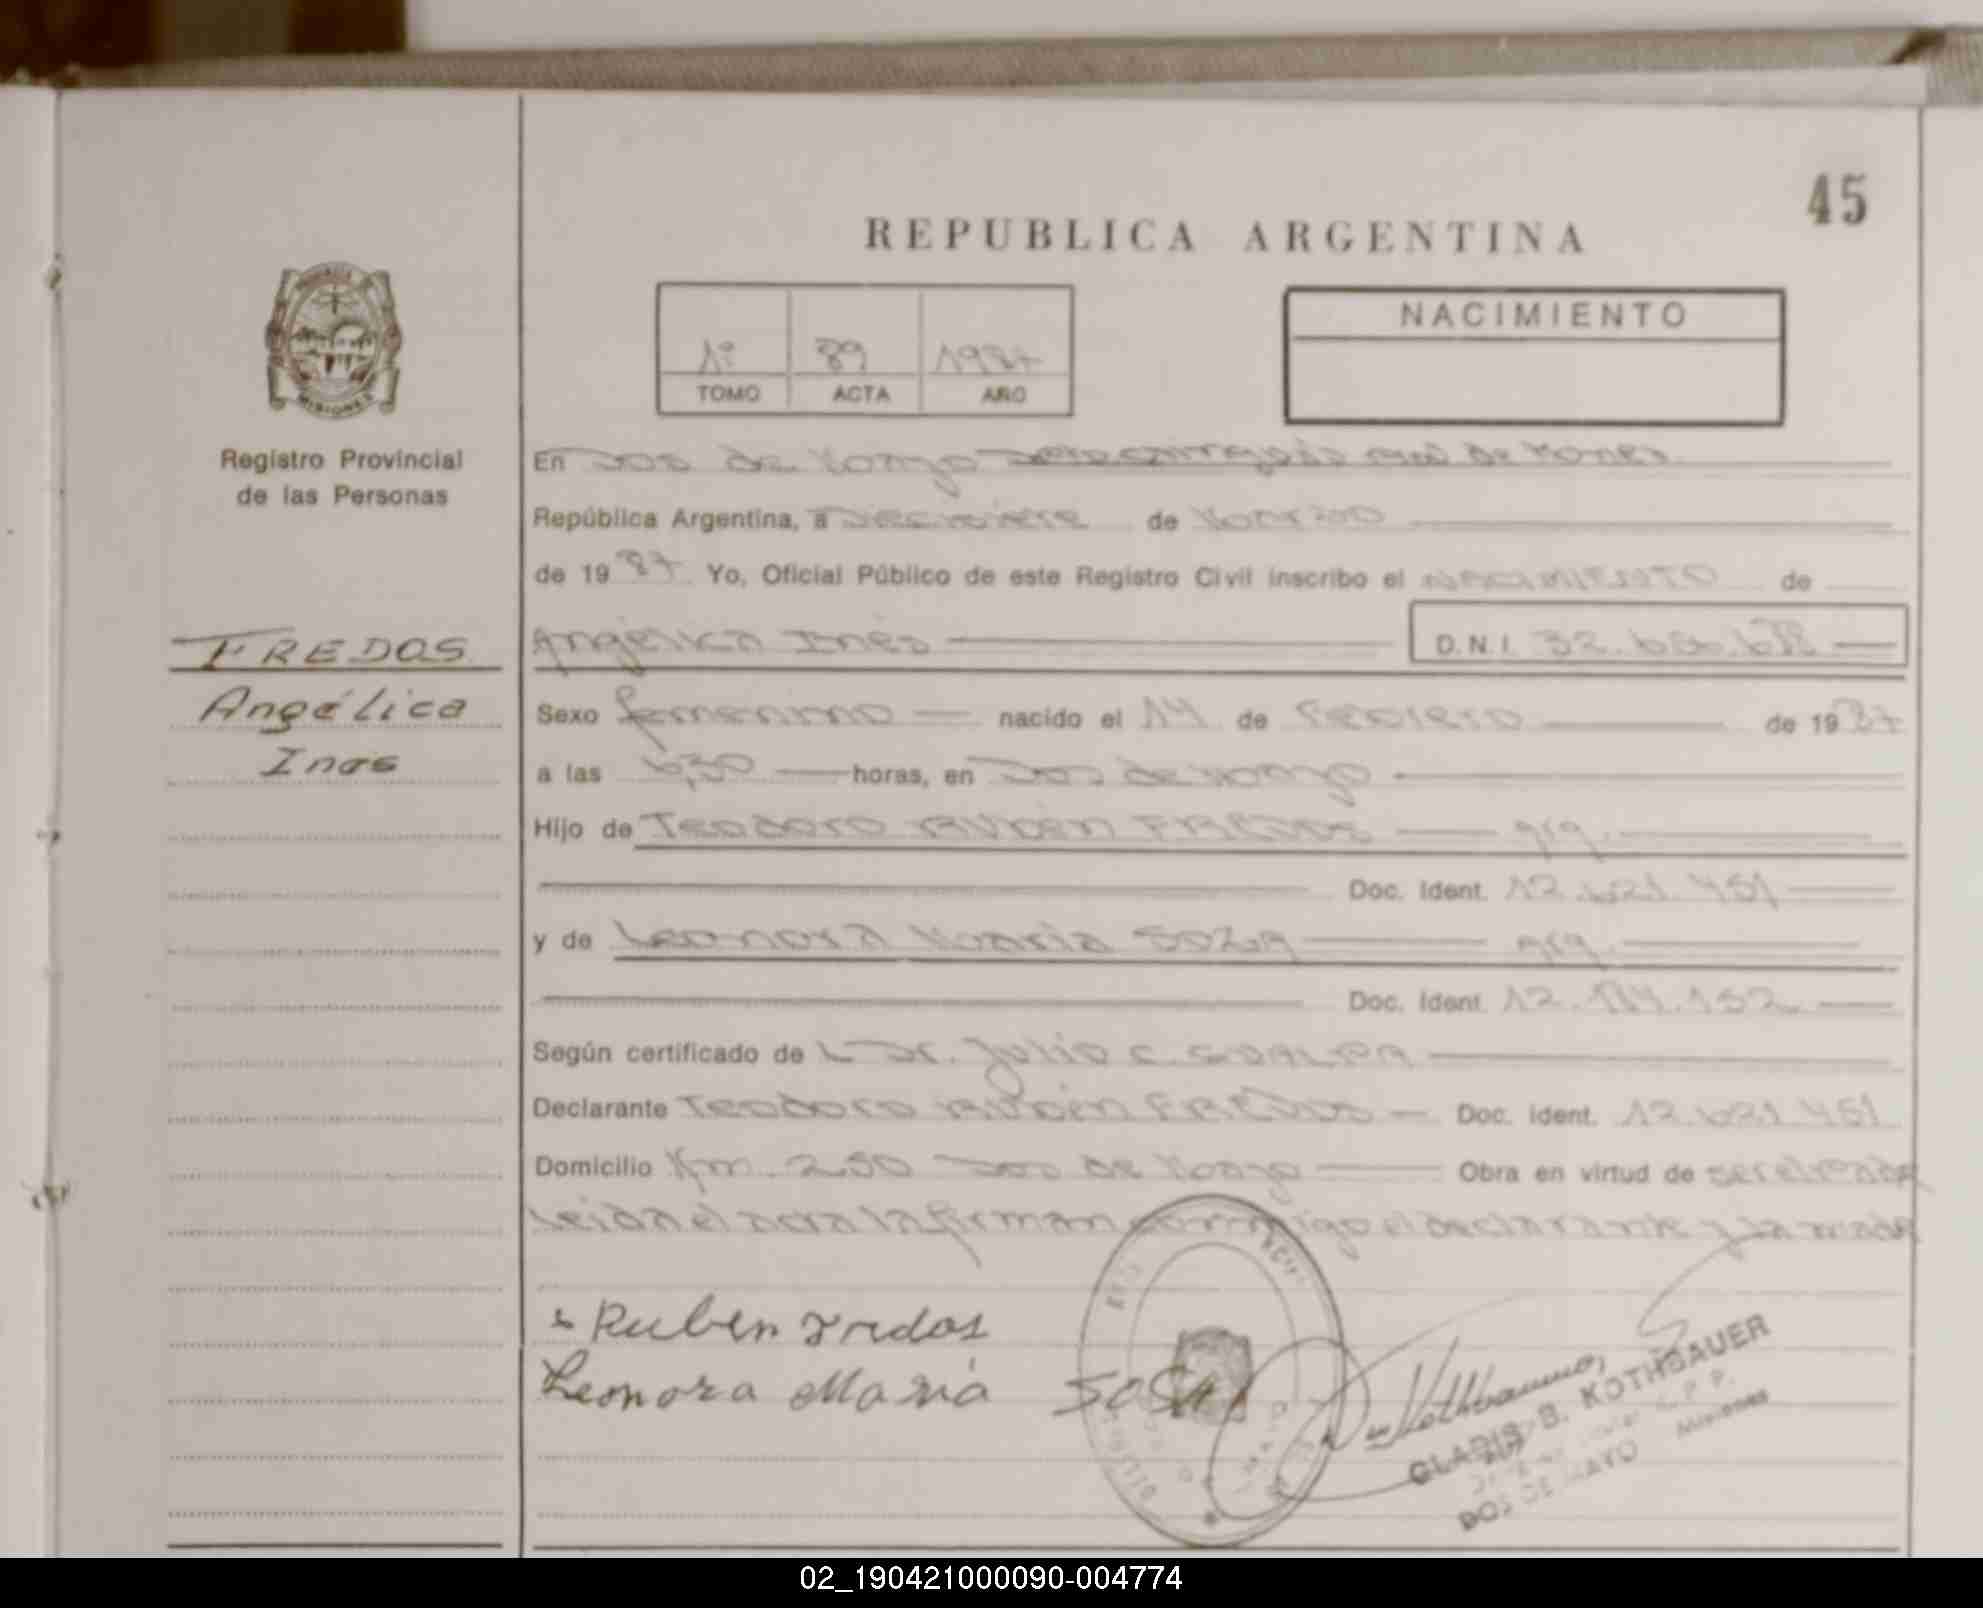 45
REPUBLICA ARGENTINA
NACIMIENTO
1º 89 1987
TOMO ACTA AÑO
MISIONES
Registro Provincial
de las Personas
En Dos de Mayo de Misiones
República Argentina, a Diecisiete de Marzo
de 1987 Yo, Oficial Público de este Registro Civil inscribo el NACIMIENTO de
FREDOS
Angélica
Ines
Angélica Inés D.N.I. 32.
Sexo femenino nacido el 14 de Febrero de 1987
a las 6,30 horas, en Dos de Mayo
Hijo de Teodoro Rubén FREDOS arg.
Doc. Ident. 12.621.451
y de Leonora Maria SOZA arg.
Doc. Ident. 12. .152
Según certificado de L Dr. Julio C.
Declarante Teodoro Rubén FREDOS Doc. Ident. 12.621.451
Domicilio Km. 250 Dos de Mayo Obra en virtud de
Leida el acta la firman conmigo el declarante y la madre
Ruben Fredos
Leonora Maria SOSA
GLADIS B. KOTHBAUER
DOS DE MAYO Misiones
02_190421000090-004774